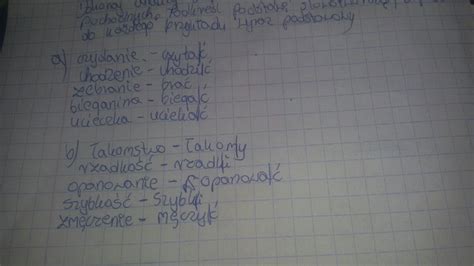 do każdego przykładu wyraz podstawowy
a) czytanie - czytać
chodzenie - chodzić
zebranie - brać
bieganina - biegać
ucieczka - uciekać
b) Łakomstwo - Łakomy
rzadkość - rzadki
opanowanie - opanować
szybkość - szybki
zmęczenie - męczyć